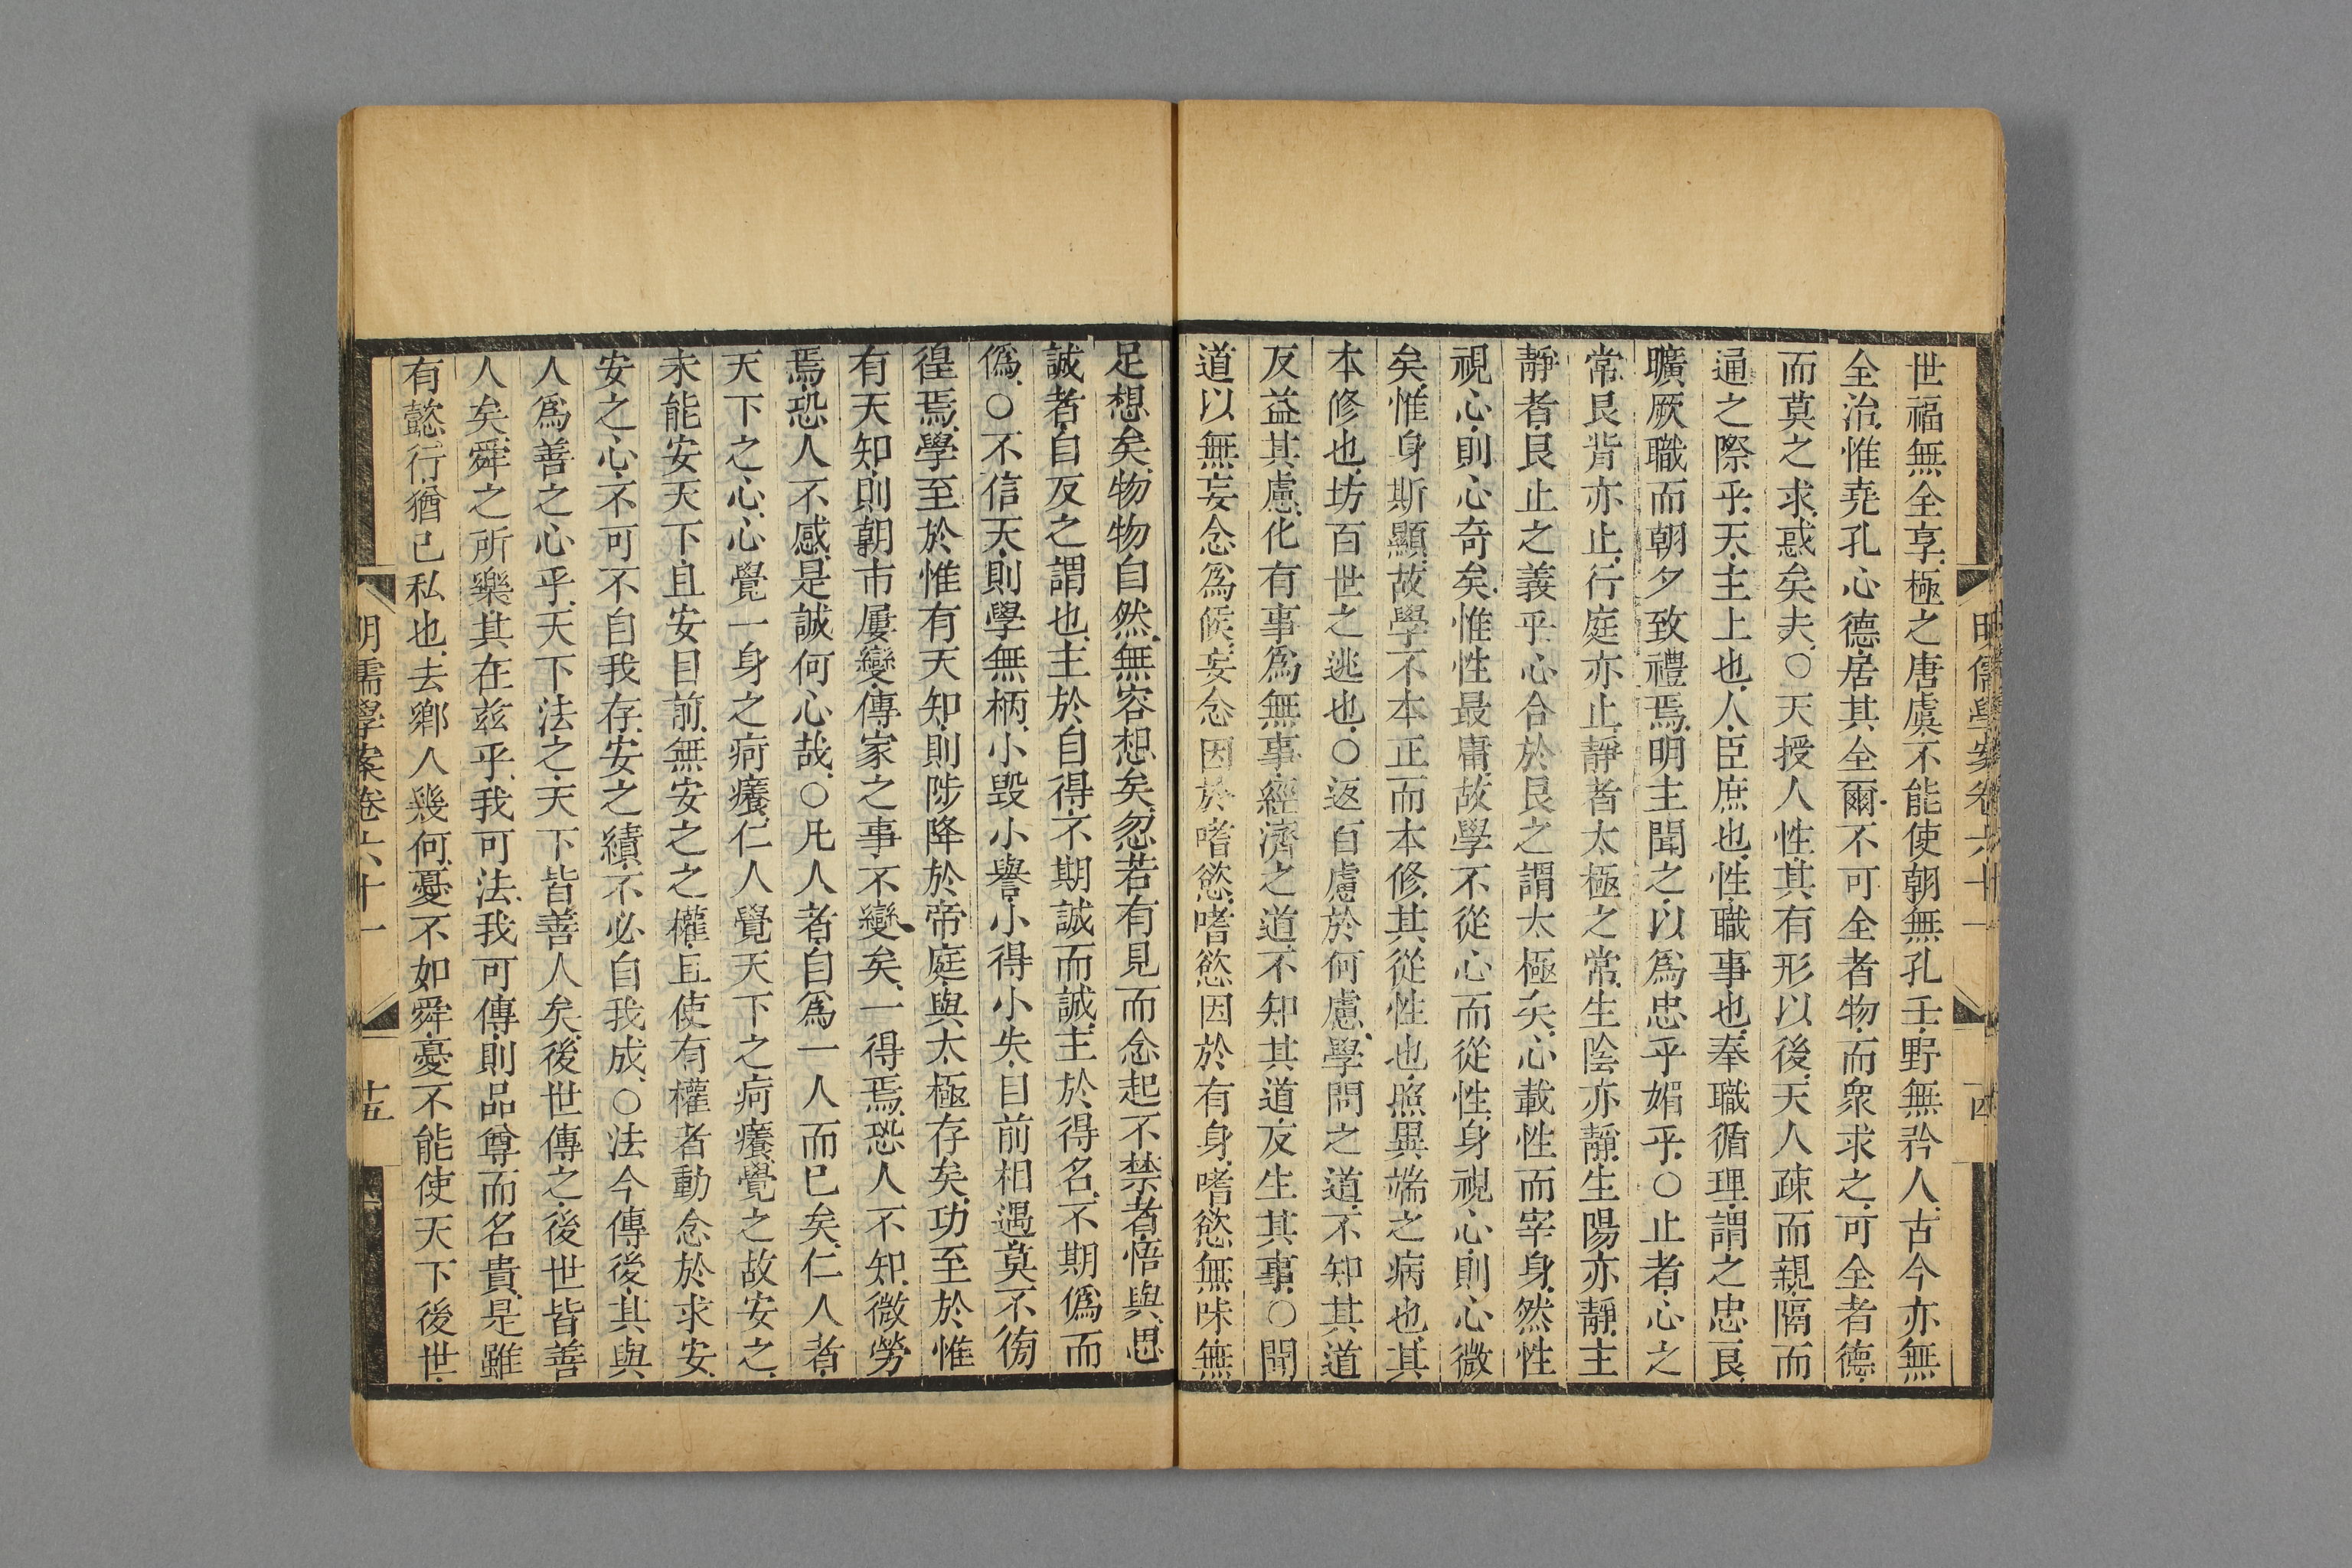 明儒學案卷六十一
十四
世福無全享極之唐虞不能使朝無孔壬野無矜人古今亦無
全治惟堯孔心德居其全爾不可全者物而衆求之可全者德
而莫之求惑矣夫○天授人性其有形以後天人疎而親隔而
通之際乎天主上也人臣庶也性職事也奉職循理謂之忠良
曠厥職而朝夕致禮焉明主聞之以爲忠乎媚乎○止者心之
常艮背亦止行庭亦止靜者太極之常生陰亦靜生陽亦靜主
靜者艮止之義乎心合於艮之謂太極矣心載性而宰身然性
視心則心奇矣惟性最庸故學不從心而從性身視心則心微
矣惟身斯顯故學不本正而本修其從性也照異端之病也其
本修也坊百世之逃也○返百慮於何慮學問之道不知其道
反益其慮化有事爲無事經濟之道不知其道反生其事○聞
道以無妄念爲候妄念因於嗜慾嗜慾因於有身嗜慾無味無
足想矣物物自然無容想矣忽若有見而念起不禁者悟與思
誠者自反之謂也主於自得不期誠而誠主於得名不期僞而
僞○不信天則學無柄小毀小譽小得小失目前相遇莫不徬
徨焉學至於惟有天知則陟降於帝庭與太極存矣功至於惟
有天知則朝市屢變傳家之事不變矣一得焉恐人不知微勞
焉恐人不感是誠何心哉○凡人者自爲一人而已矣仁人者
天下之心心覺一身之疴癢仁人覺天下之疴癢覺之故安之
未能安天下且安目前無安之之權且使有權者動念於求安
安之心不可不自我存安之績不必自我成○法今傳後其與
人爲善之心乎天下法之天下皆善人矣後世傳之後世皆善
人矣舜之所樂其在兹乎我可法我可傳則品尊而名貴是雖
有懿行猶已私也去鄉人幾何憂不如舜憂不能使天下後世
明儒學案卷六十一
十五